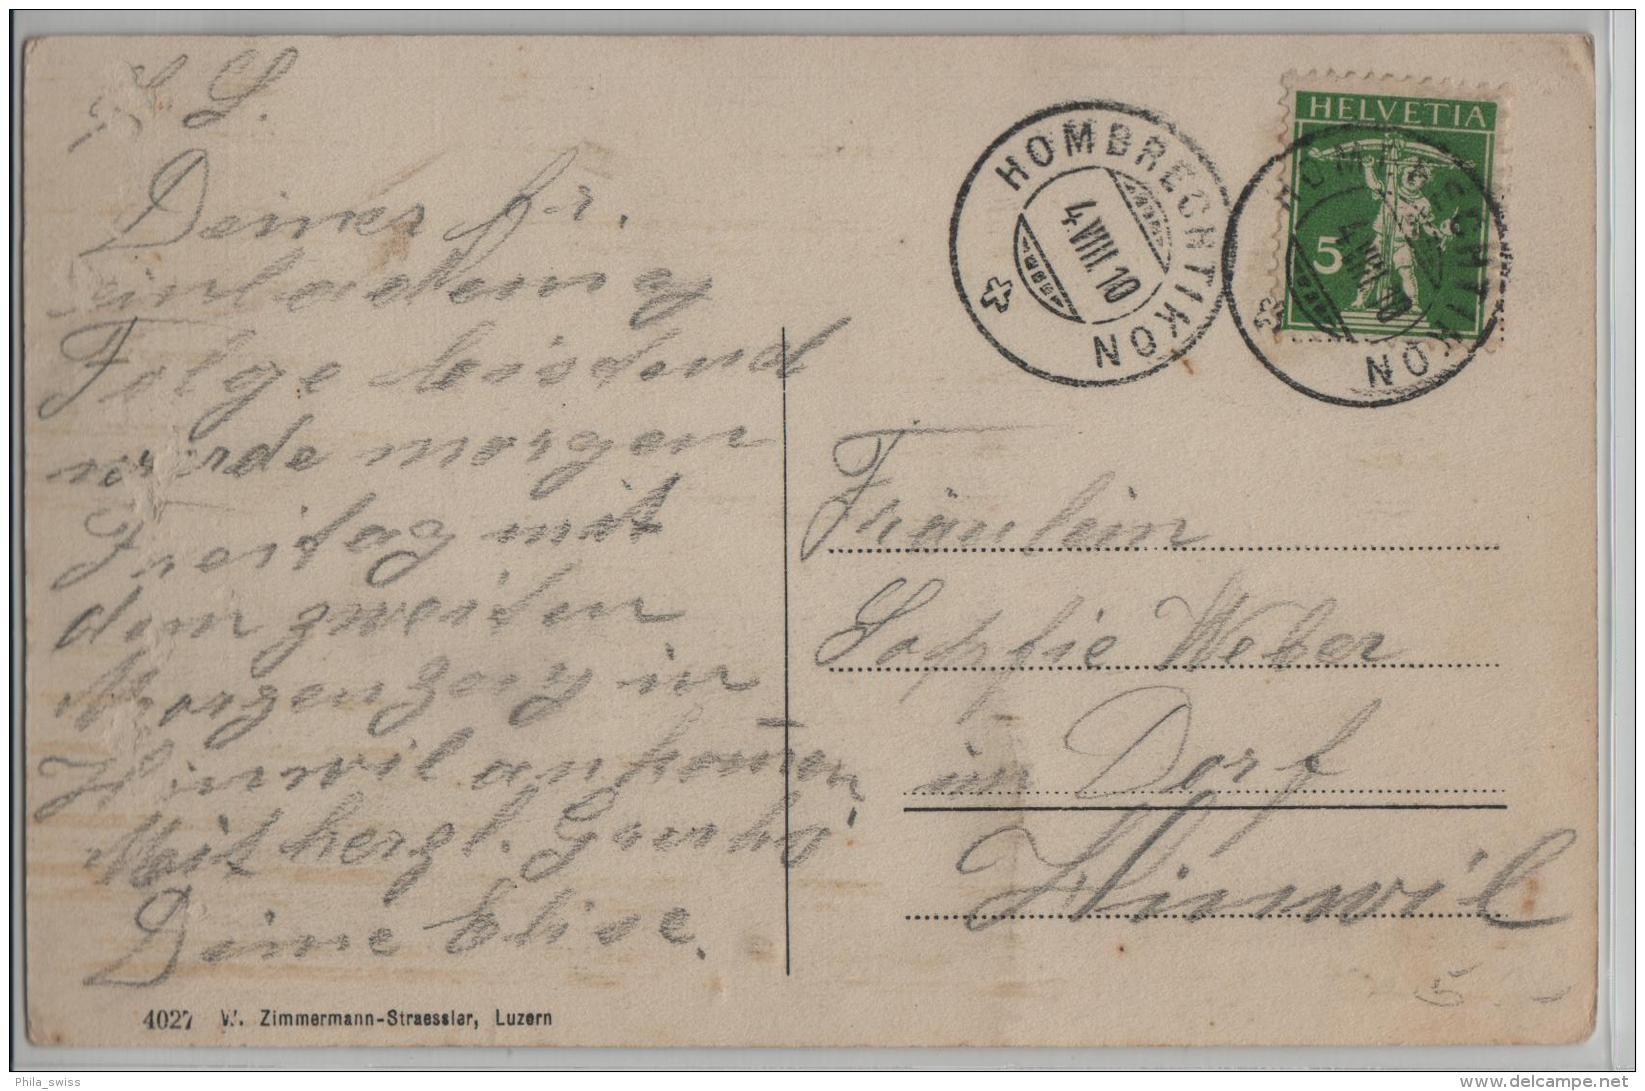 L. S.
Deiner fr.
Einladung
Folge leistend
werde morgen
Freitag mit
dem zweiten
Morgenzug in
Hinwil ankom̄en
Mit herzl. Gruss
Deine Elise.
4027 W. Zimmermann-Straessler, Luzern
HOMBRECHTIKON
4.VIII.10
HELVETIA
5
HOMBRECHTIKON
4.VIII.10
Fräulein
Sophie Weber
im Dorf
Hinwil
5.-
Phila_swiss
delcampe.net